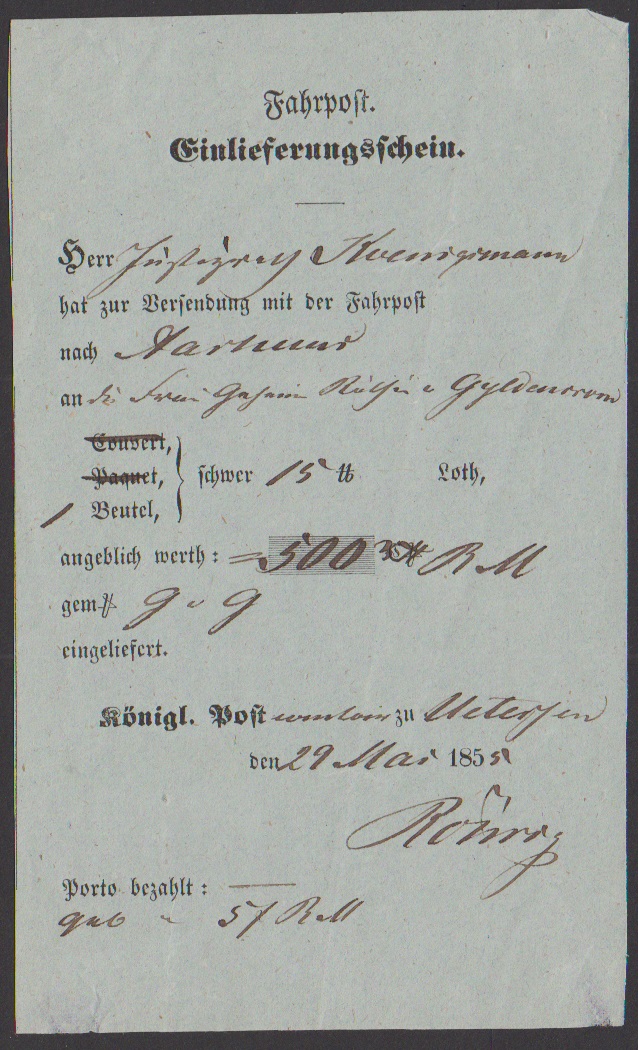 Fahrpost.
Einlieferungsschein.
Herr Justizrath Koenigsmann
hat zur Versendung mit der Fahrpost
nach Aarhuus
an die Frau Geheim Räthin v Gyldencrone
Couvert,
Paquet, schwer 15 ℔ Loth,
1 Beutel,
angeblich werth: = 500 RM
gem
eingeliefert.
Königl. Post comtoir zu Uetersen
den 29 Mai 1855
Porto bezahlt: —
57 RM